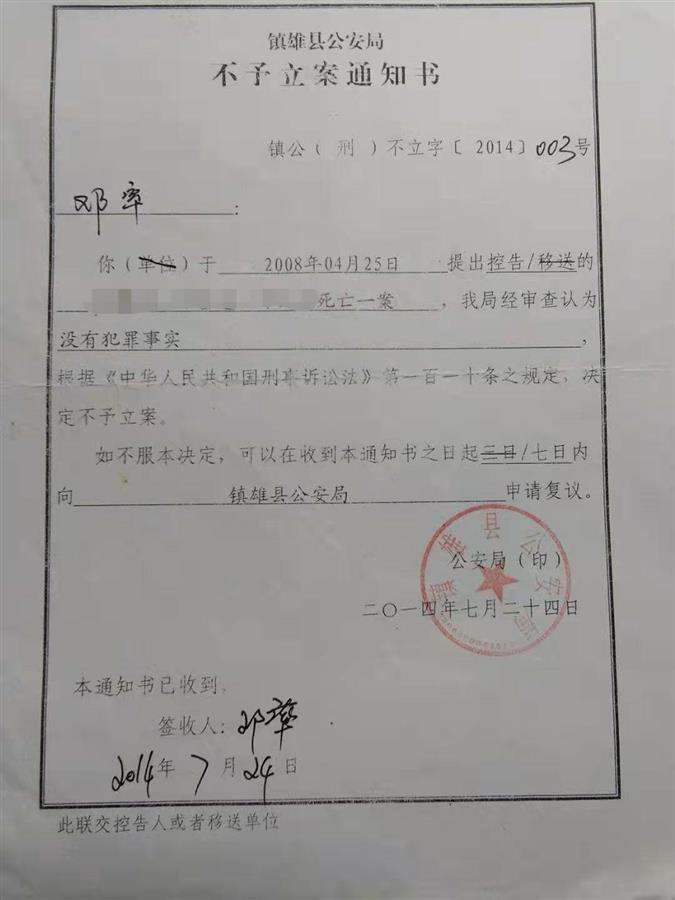 镇雄县公安局
不予立案通知书
镇公(刑)不立字〔2014〕003号
邓率:
你(单位)于2008年04月25日提出控告/移送的
死亡一案,我局经审查认为
没有犯罪事实,
根据《中华人民共和国刑事诉讼法》第一百一十条之规定,决
定不予立案。
如不服本决定,可以在收到本通知书之日起三日/七日内
向镇雄县公安局申请复议。
镇雄县公安局
公安局(印)
二〇一四年七月二十四日
本通知书已收到。
签收人:邓率
2014年7月24日
此联交控告人或者移送单位